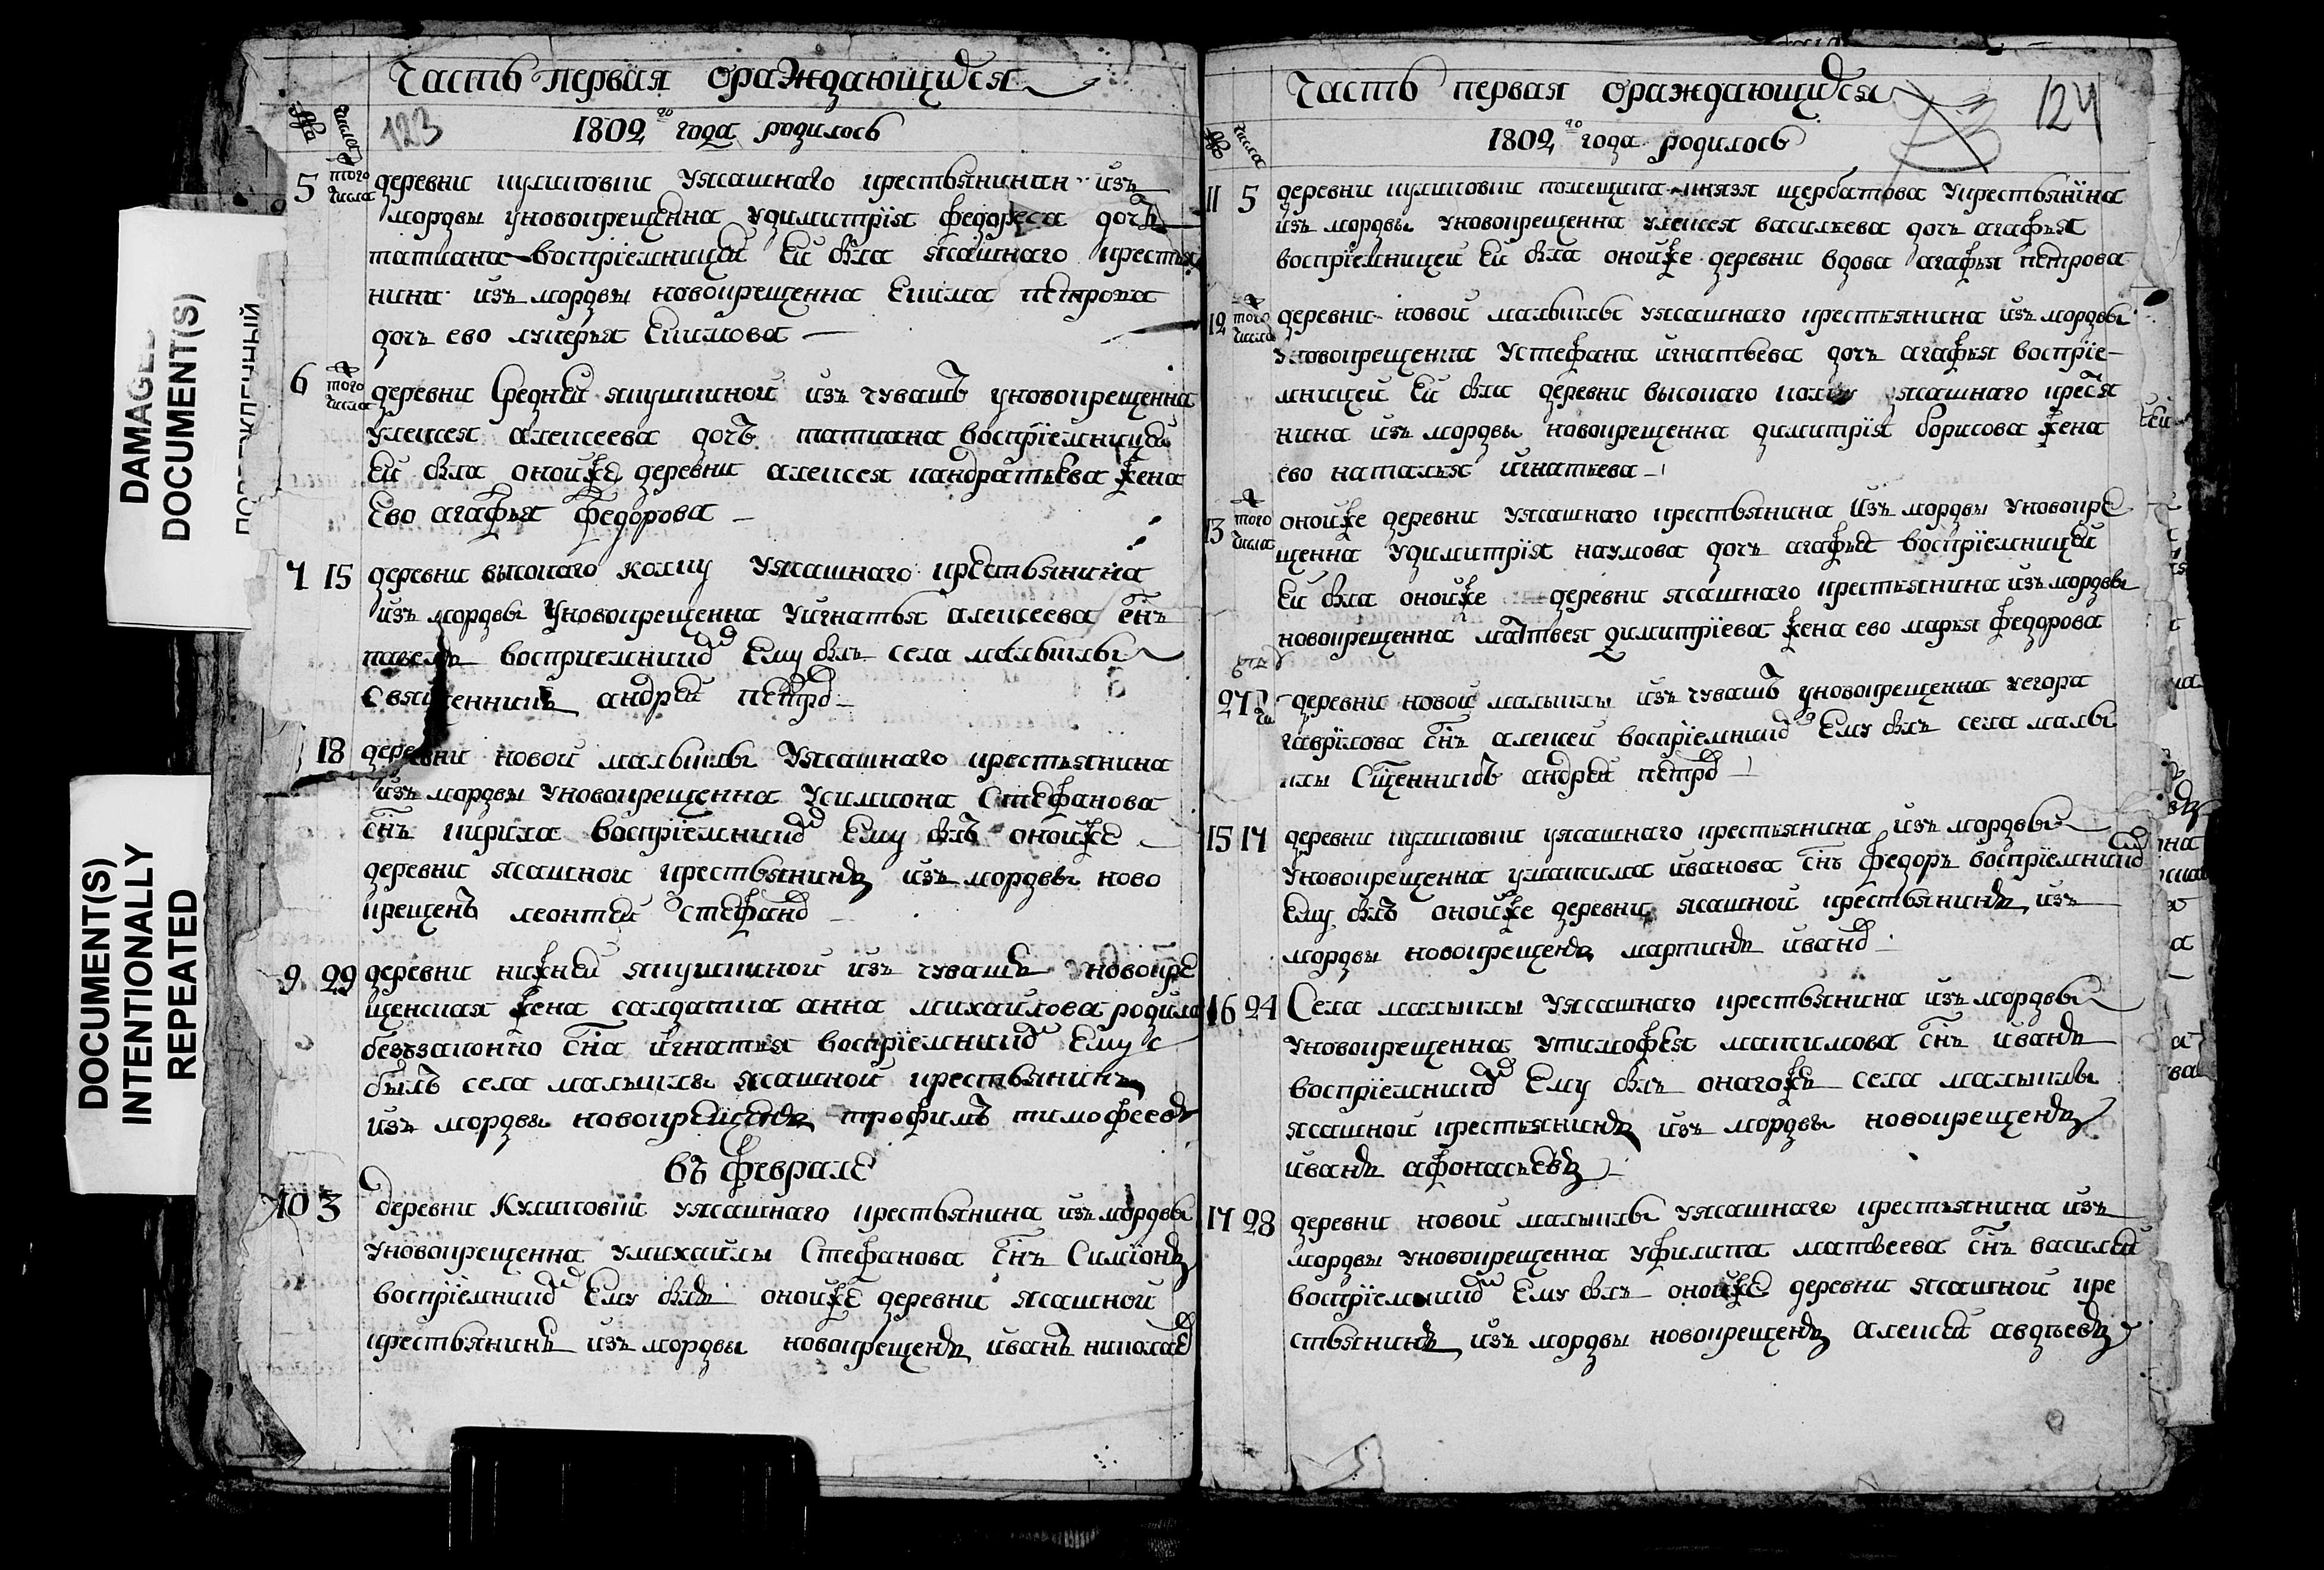 Часть первая ораждающихся
123
1802го года родилось
№
числа
5 того числа деревни куликовки уясашнаго крестьянина изъ
мордвы уновокрещенна удимитрїя федорова дочь
татиана восприемницей ей была ясашнаго крестья
нина изъ мордвы новокрещенна екима петрова
дочь ево лукерья екимова
6 того числа деревни средней якушкиной изъ чувашъ уновокрещенна
уалексея алексеева дочъ татиана воспрїемницей
ей была оной же деревни алексея кандратьева жена
ево агафья федорова
7 15 деревни высокаго колку уясашнаго крестьянина
изъ мордвы уновокрещенна уигнатья алексеева снъ
павелъ восприемникомъ ему былъ села малыклы
священникъ андрей петровъ
18 деревни новой малыклы уясашнаго крестьянина
изъ мордвы уновокрещенна усимиона стефанова
снъ кирила воспрїемникомъ ему былъ оной же
деревни ясашной крестьянинъ изъ мордвы ново
крещенъ леонтей стефановъ
9 29 деревни нижней якушкиной изъ чувашъ новокре
щенская жена салдатка анна михайлова родила
беззаконно сна игнатья воспрїемникомъ ему
былъ села малыклы ясашной крестьянинъ
изъ мордвы новокрещенъ трофимъ тимофеевъ
въ феврале
10 3 деревни куликовки уясашнаго крестьянина изъ мордвы
уновокрещенна умихайлы стефанова снъ симїонъ
воспрїемникомъ ему былъ оной же деревни ясашной
крестьянинъ изъ мордвы новокрещенъ иванъ николаевъ
Часть первая ораждающихся
124
1802го года родилось
№
числа
11 5 деревни куликовки помещика князя щербатова укрестьянина
изъ мордвы уновокрещенна уалексея васильева дочь агафья
воспрїемницей ей была оной же деревни вдова агафья петрова
12 того числа деревни новой малыклы уясашнаго крестьянина изъ мордвы
уновокрещенна устефана игнатьева дочь агафья воспрїе-
мницей ей была деревни высокаго колку ясашнаго крестья
нина изъ мордвы новокрещенна димитрїя борисова жена
ево наталья игнатьева
13 того числа оной же деревни уясашнаго крестьянина изъ мордвы уновокре
щенна удимитрїя наумова дочь агафья воспрїемницей
ей была оной же деревни ясашнаго крестьянина изъ мордвы
новокрещенна матвея димитрїева жена ево марья федорова
деревни новой малыклы изъ чувашъ уновокрещенна уегора
гаврїлова снъ алексей воспрїемникомъ ему былъ села малы
клы сщенникъ андрей петровъ
15 17 деревни куликовки уясашнаго крестьянина изъ мордвы
уновокрещенна умаксима иванова снъ федоръ воспрїемникомъ
ему былъ оной же деревни ясашной крестьянинъ изъ
мордвы новокрещенъ мартинъ ивановъ
16 24 Села малыклы уясашнаго крестьянина изъ мордвы
уновокрещенна утимофея максимова снъ иванъ
воспрїемникомъ ему былъ онагожъ села малыклы
ясашной крестьянинъ изъ мордвы новокрещенъ
иванъ афонасьевъ
17 28 деревни новой малыклы уясашнаго крестьянина изъ
мордвы уновокрещенна уфилипа матвеева снъ василей
воспрїемникомъ ему былъ оной же деревни ясашной кре
стьянинъ изъ мордвы новокрещенъ алексей авдеевъ
DAMAGED
DOCUMENT(S)
DOCUMENT(S)
INTENTIONALLY
REPEATED